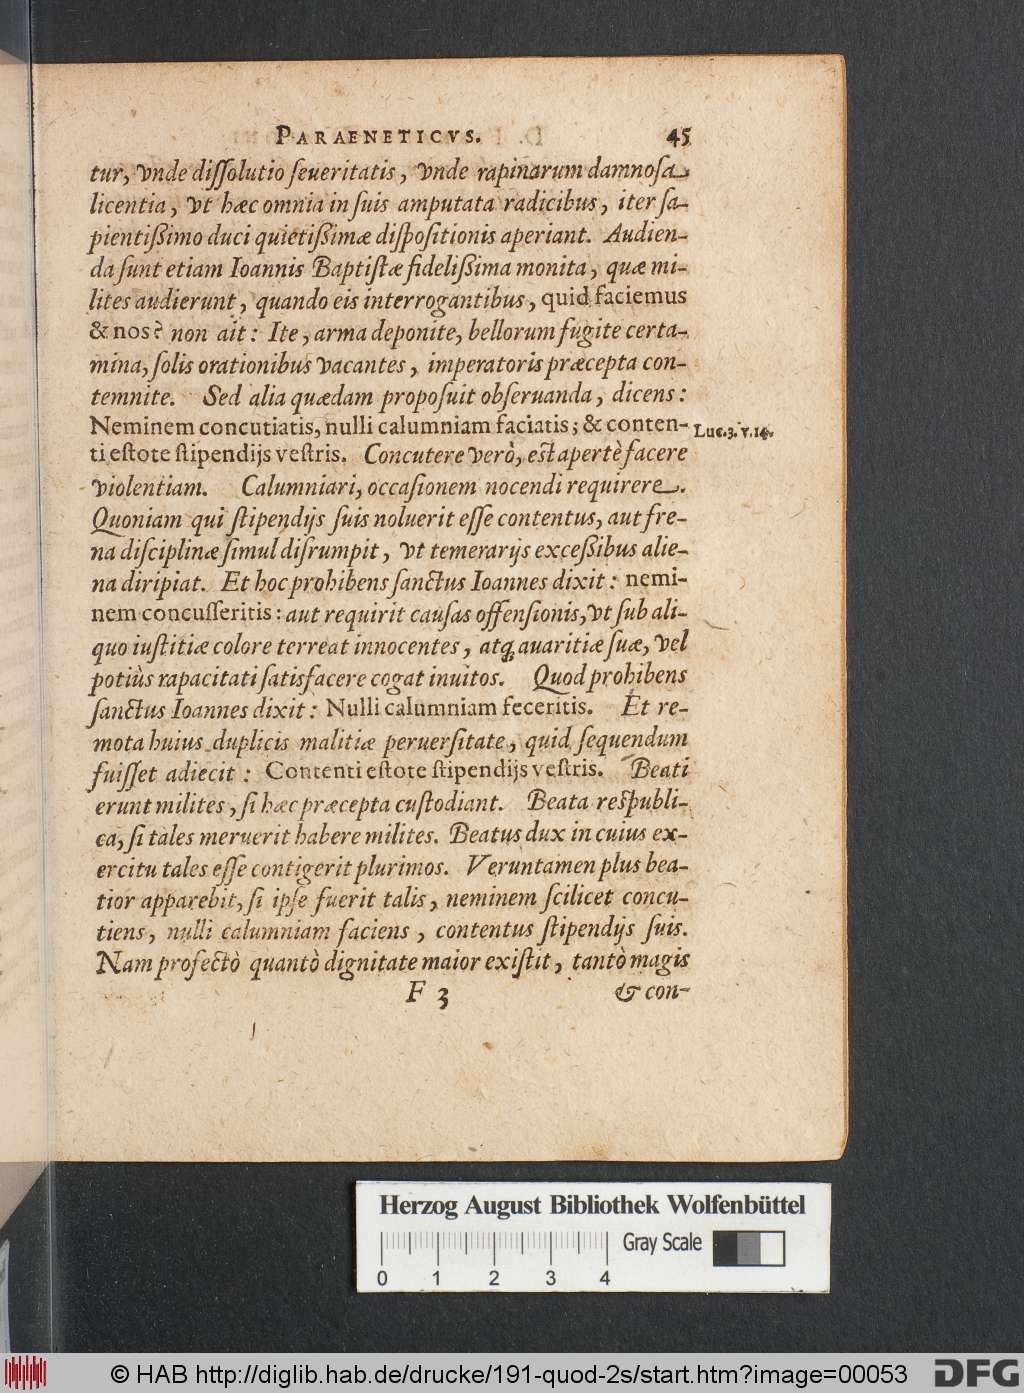 PARAENETICVS. 45
tur, vnde dissolutio seueritatis, vnde rapinarum damnosa
licentia, vt hæc omnia in suis amputata radicibus, iter sa-
pientißimo duci quietißimæ dispositionis aperiant. Audien-
da sunt etiam Ioannis Baptistæ fidelißima monita, quæ mi-
lites audierunt, quando eis interrogantibus, quid faciemus
& nos? non ait: Ite, arma deponite, bellorum fugite certa-
mina, solis orationibus vacantes, imperatoris præcepta con-
temnite. Sed alia quædam proposuit obseruanda, dicens:
Neminem concutiatis, nulli calumniam faciatis; & conten-
Luc. 3. v. 14.
ti estote stipendijs vestris. Concutere verò, est apertè facere
violentiam. Calumniari, occasionem nocendi requirere.
Quoniam qui stipendijs suis noluerit esse contentus, aut fre-
na disciplinæ simul disrumpit, vt temerarijs exceßibus alie-
na diripiat. Et hoc prohibens sanctus Ioannes dixit: nemi-
nem concusseritis: aut requirit causas offensionis, vt sub ali-
quo iustitiæ colore terreat innocentes, atq; auaritiæ suæ, vel
potiùs rapacitati satisfacere cogat inuitos. Quod prohibens
sanctus Ioannes dixit: Nulli calumniam feceritis. Et re-
mota huius duplicis malitiæ peruersitate, quid sequendum
fuisset adiecit: Contenti estote stipendijs vestris. Beati
erunt milites, si hæc præcepta custodiant. Beata respubli-
ca, si tales meruerit habere milites. Beatus dux in cuius ex-
ercitu tales esse contigerit plurimos. Veruntamen plus bea-
tior apparebit, si ipse fuerit talis, neminem scilicet concu-
tiens, nulli calumniam faciens, contentus stipendijs suis.
Nam profectò quantò dignitate maior existit, tantò magis
F 3 & con-
Herzog August Bibliothek Wolfenbüttel
Gray Scale
0 1 2 3 4
© HAB http://diglib.hab.de/drucke/191-quod-2s/start.htm?image=00053
DFG